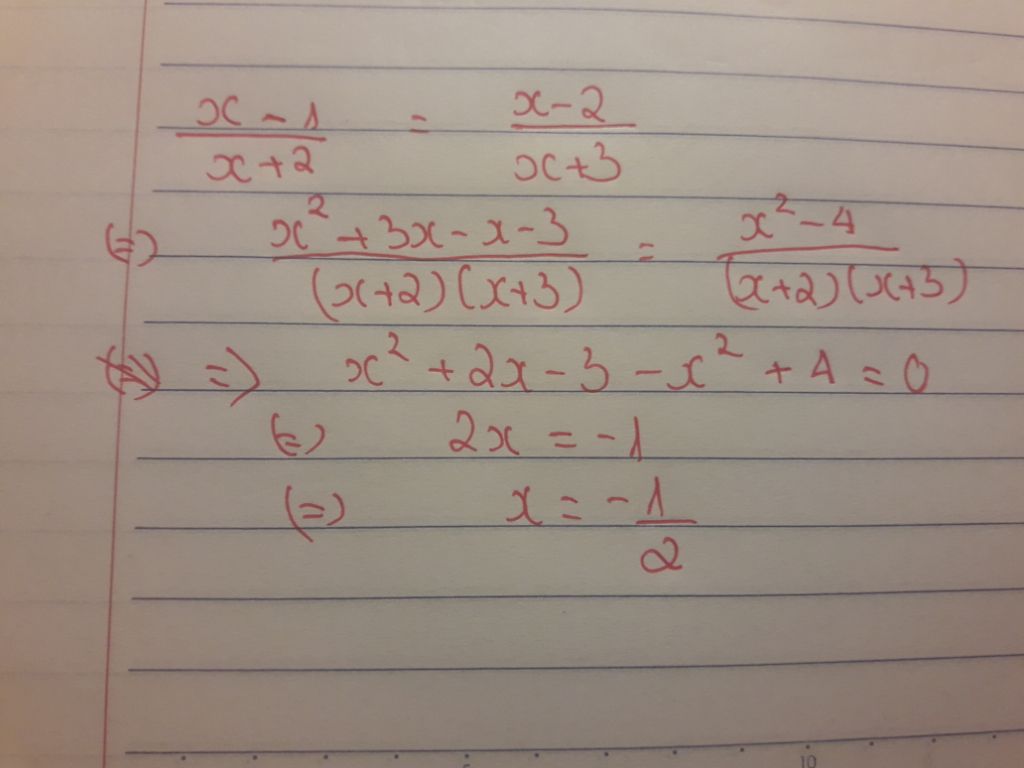 x - 1 / x + 2 = x - 2 / x + 3
(=) x² + 3x - x - 3 / (x+2)(x+3) = x² - 4 / (x+2)(x+3)
=> x² + 2x - 3 - x² + 4 = 0
(=) 2x = -1
(=) x = -1/2
10